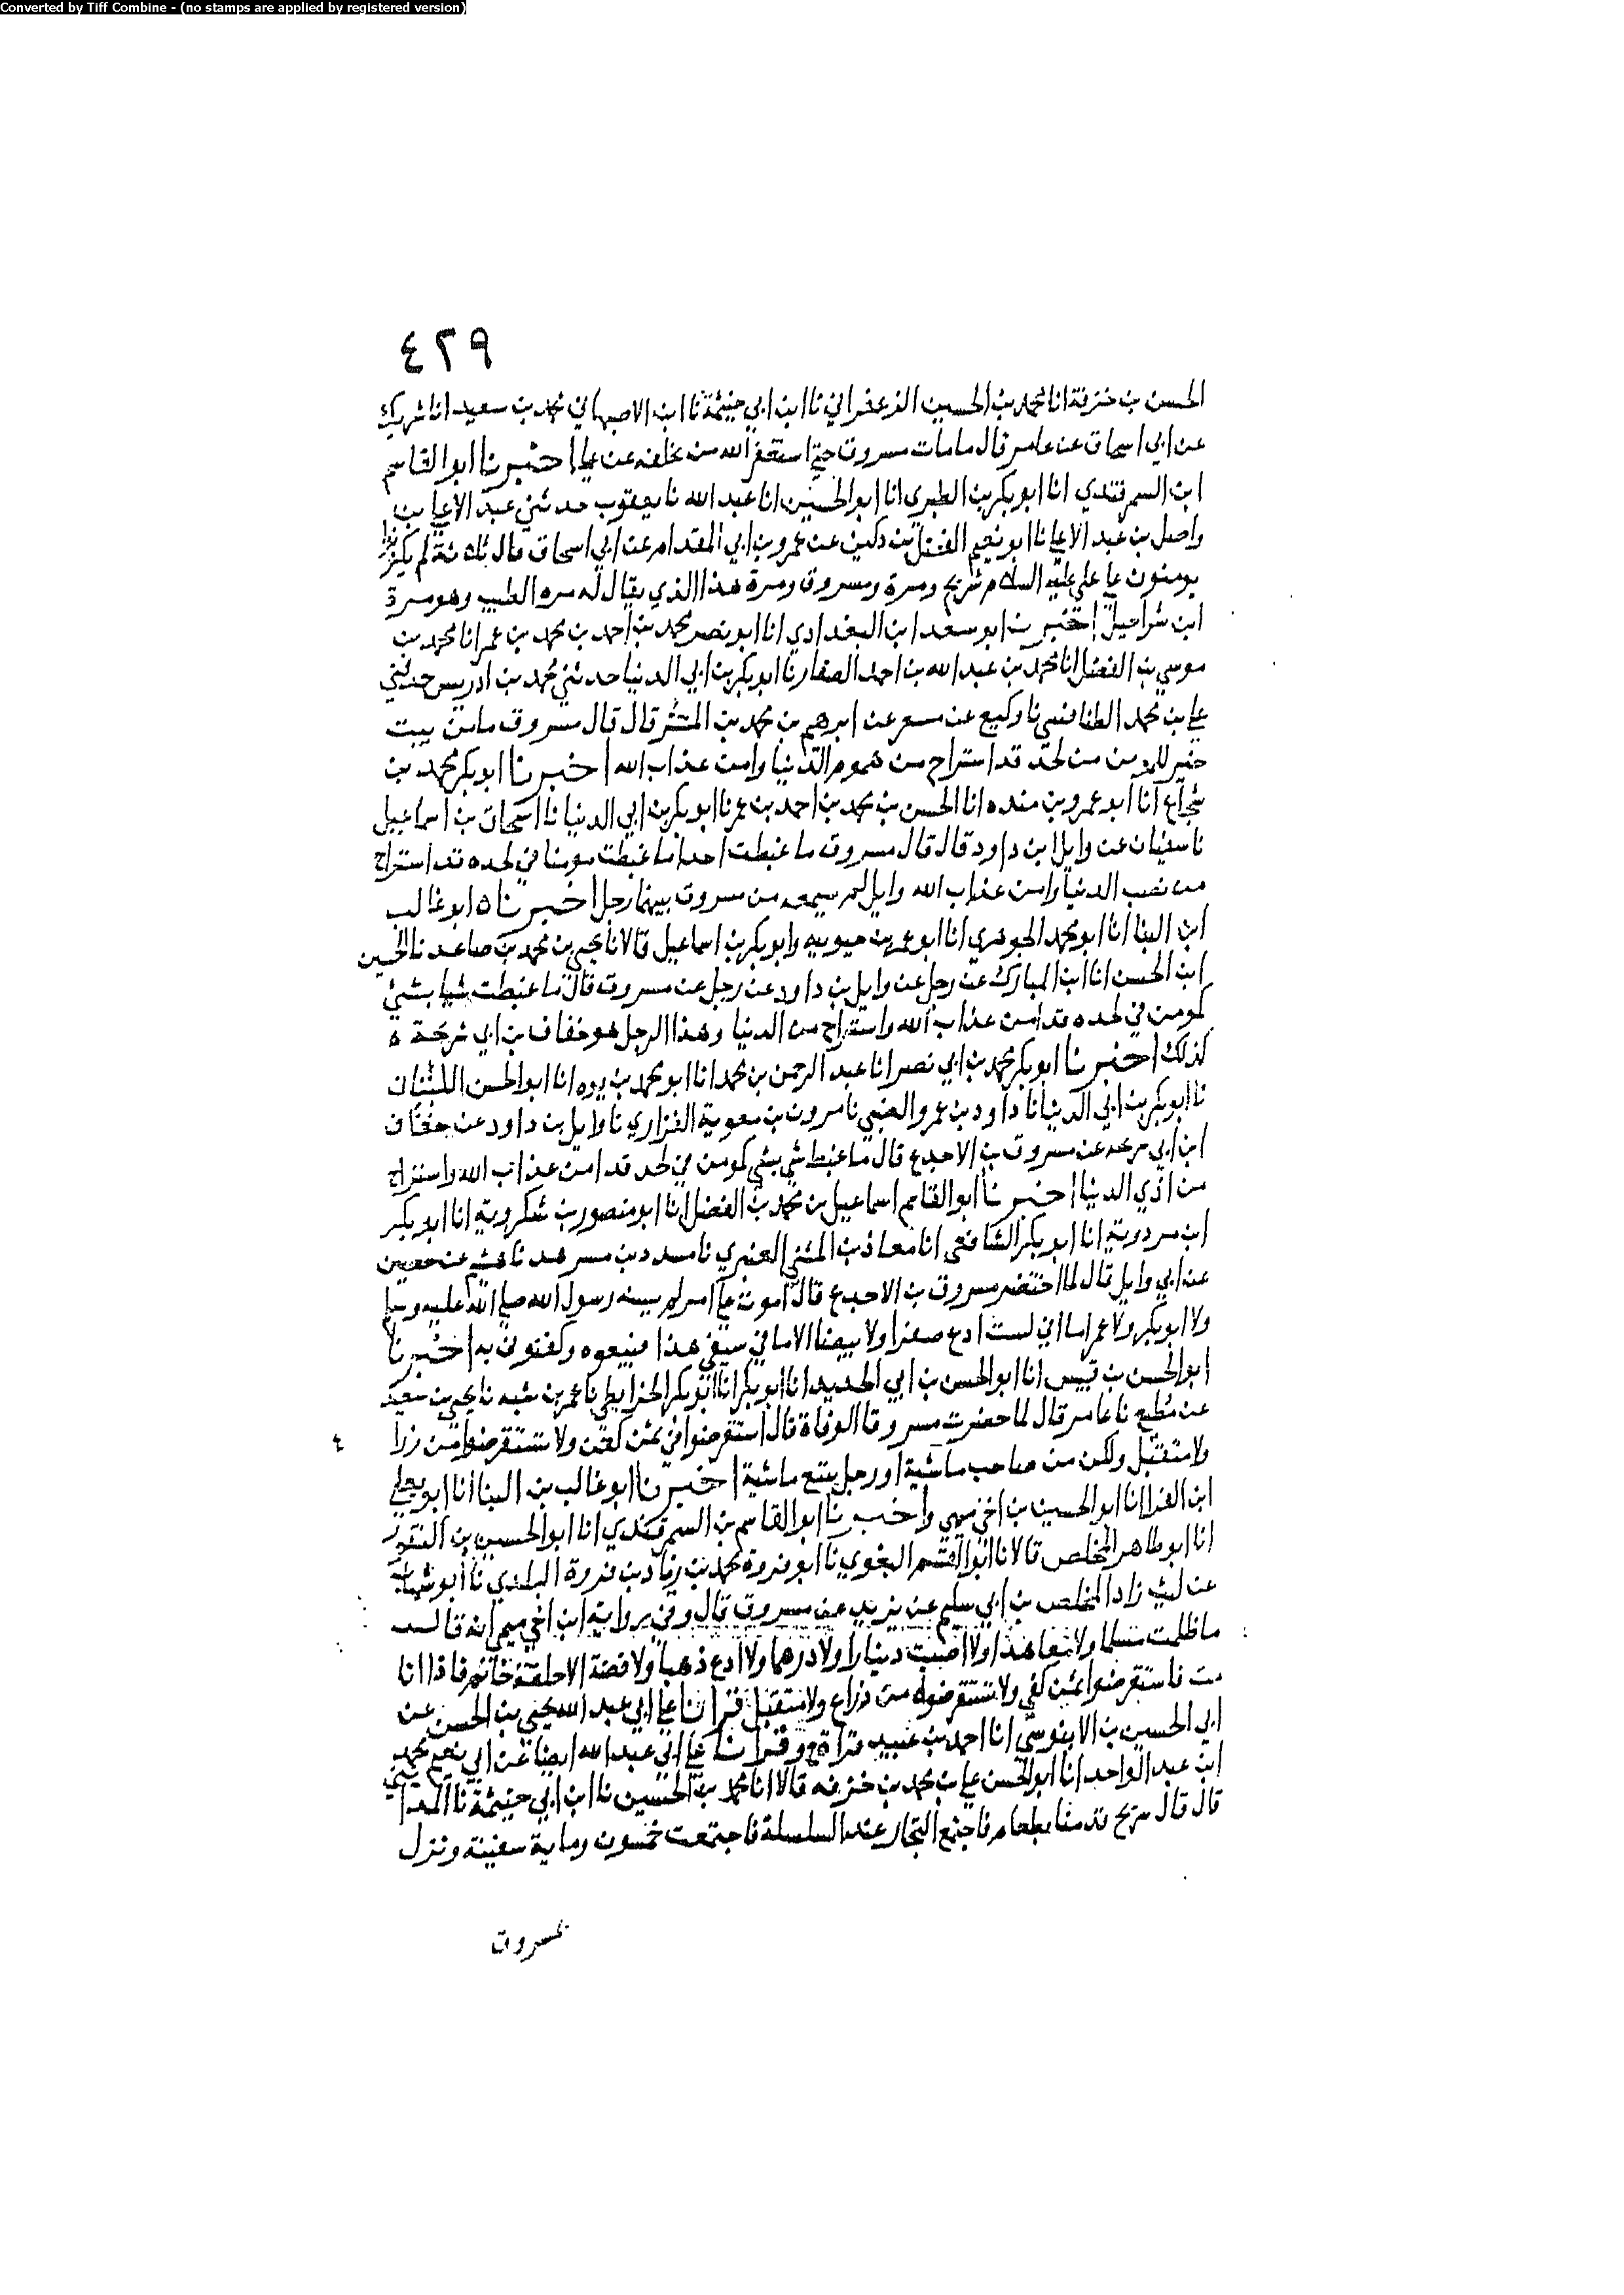 Converted by Tiff Combine - (no stamps are applied by registered version)
٤٢٩
الحسن بن خزفة انا محمد بن الحسين الزعفراني نا ابن ابي خيثمة نا ابن الاصبهاني محمد بن سعيد انا شريك
عن ابي اسحاق عن عامر قال ما مات مسروق حتى استغفر الله من تخلفه عن علي اخبرنا ابو القاسم
ابن السمرقندي انا ابو بكر بن الطبري انا ابو الحسين انا عبد الله نا يعقوب حدثني عبد الاعلى بن
واصل بن عبد الاعلى نا ابو نعيم الفضل بن دكين عن عمرو بن ابي المقدام عن ابي اسحاق قال ثلاثة لم يكونوا
يومنون على علي عليه السلام شريح ومرة ومسروق ومرة هذا الذي يقال له مره الطيب وهو مرة
ابن شراحيل اخبرنا ابو سعد ابن البغدادي انا ابو نصر محمد بن احمد بن محمد بن عمر انا محمد بن
موسى بن الفضل انا محمد بن عبد الله بن احمد الصفار نا ابو بكر بن ابي الدنيا حدثني محمد بن ادريس حدثني
علي بن محمد الطنافسي نا وكيع عن مسعر عن ابرهيم بن محمد بن المنتشر قال قال مسروق ما من بيت
خير للمومن من لحد قد استراح من هموم الدنيا وامن عذاب الله اخبرنا ابو بكر محمد بن
شجاع انا ابو عمرو بن منده انا الحسن بن محمد بن احمد بن عمر نا ابو بكر بن ابي الدنيا نا اسحاق بن اسماعيل
نا سفيان عن وايل ابن داود قال قال مسروق ما غبطت احدا ما غبطت مومنا في لحده قد استراح
من نصب الدنيا وامن عذاب الله وايل لم يسمعه من مسروق بينهما رجل اخبرناه ابو غالب
ابن البنا انا ابو محمد الجوهري انا ابو عمر بن حيويه وابو بكر بن اسماعيل قالا نا يحيى بن محمد بن صاعد نا الحسين
ابن الحسن انا ابن المبارك عن رجل عن وايل بن داود عن رجل عن مسروق قال ما غبطت شيا بشئ
كمومن في لحده قد امن عذاب الله واستراح من الدنيا وهذا الرجل هو خفاف بن ابي شريحة ه
كذلك اخبرنا ابو بكر محمد بن ابي نصر انا عبد الرحمن بن محمد انا ابو محمد بن يوه انا ابو الحسن اللنباني
نا ابو بكر بن ابي الدنيا نا داود بن عمرو الضبي نا مرون بن معوية الفزاري نا وايل بن داود عن خفاف
ابن ابي عن مسروق بن الاجدع قال ما غبط شي بشي كمومن في لحد قد امن عذاب الله واستراح
من اذي الدنيا اخبرنا ابو القاسم اسماعيل بن محمد بن الفضل انا ابو منصور بن شكروية انا ابو بكر
ابن مردوية انا ابو بكر الشافعي انا معاذ بن المثنى العنبري نا مسدد بن مسرهد نا هشيم عن حصين
عن ابي وايل قال لما احتضر مسروق بن الاجدع قال اموت على امر لم يسنه رسول الله صلى الله عليه وسلم
ولا ابو بكر ولا عمر اما اني لست ادع صفرا ولا بيضا الا ما في سيفي هذا فبيعوه وكفنوني به اخبرنا
ابو الحسن بن قبيس انا ابو الحسن بن ابي الحديد انا ابو بكر انا ابو بكر الخرايطي نا عمر بن شبه نا يحيى بن سعيد
عن مطيع نا عامر قال لما حضرت مسروقا الوفاة قال استقرضوا في ثمن كفن ولا تستقرضوا من زراع
ولا متقبل ولكن من صاحب ماشية او رجل يبتع ماشية اخبرنا ابو غالب بن البنا انا ابو يعلي
ابن الفرا انا ابو الحسين بن اخي ميمي واخبرنا ابو القاسم بن السمرقندي انا ابو الحسين بن النقور
انا ابو طاهر المخلص قالا نا ابو القسم البغوي نا ابو فروة محمد بن زياد بن فروة البلدي نا ابو شهاب
عن ليث زاد المخلص بن ابي سليم عن يزيد عن مسروق قال وفي رواية ابن اخي ميمي انه قال
ما ظلمت مسلما ولا معاهدا ولا اصبت دينارا ولا درهما ولا ادع ذهبا ولا فضة الا حلقة خاتم فاذا انا
مت فاستقرضوا ثمن كفني ولا تستقرضوه من زراع ولا متقبل قرانا على ابي عبد الله يحيى بن الحسن عن
ابي الحسين بن الابنوسي انا احمد بن عبيد قراة ح وقرانا على ابي عبد الله ايضا عن ابي نعيم محمد
ابن عبد الواحد انا ابو الحسن علي بن محمد بن خزفه قالا انا محمد بن الحسين نا ابن ابي خيثمة نا المدايني
قال قال شريح قدمنا بطعام فاجتمع التجار عند السلسلة فاجتمعت خمسون وماية سفينة ونزل
مسروق